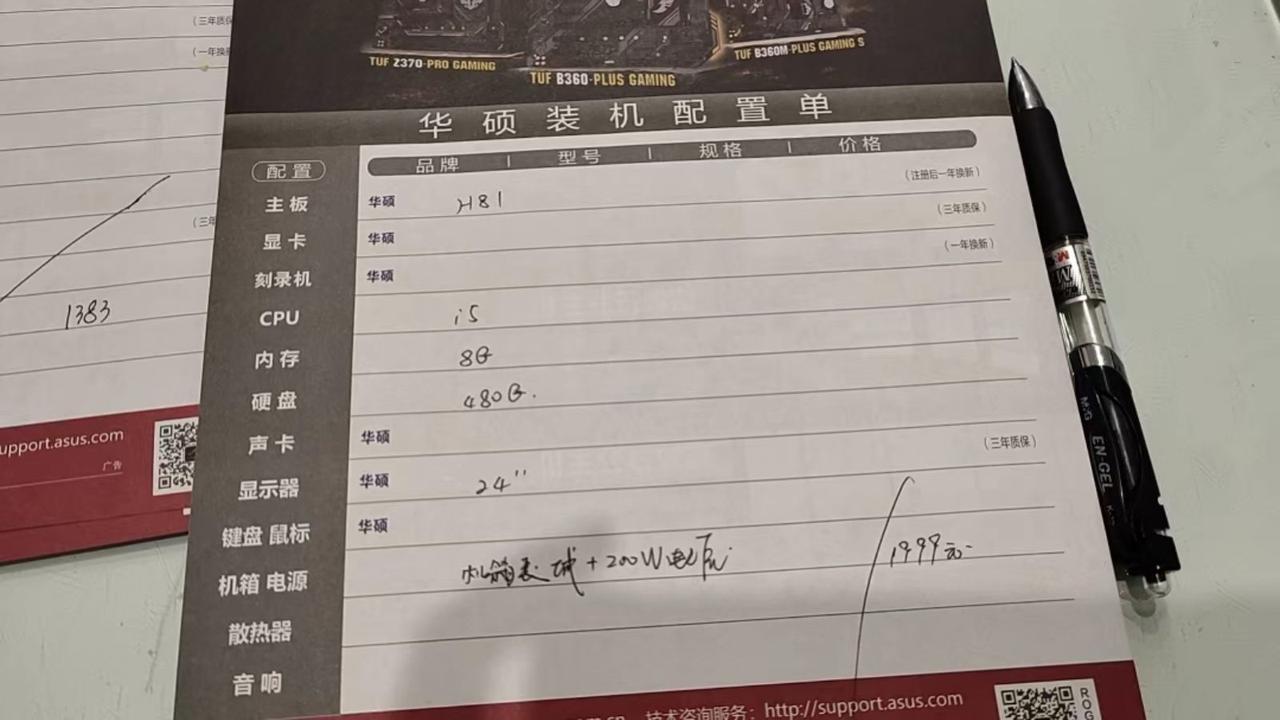 (三年质保
(一年换新
(三年
1383
support.asus.com
广告
TUF Z370-PRO GAMING
TUF B360-PLUS GAMING
TUF B360M-PLUS GAMING S
华硕装机配置单
配置 品牌 | 型号 | 规格 | 价格
(注册后一年换新)
主板 华硕 H81
(三年质保)
显卡 华硕
(一年换新)
刻录机 华硕
CPU i5
内存 8G
硬盘 480G.
声卡 华硕
(三年质保)
显示器 华硕 24"
键盘 鼠标 华硕
机箱 电源 机箱 +200W电 1999元
散热器
音响
技术咨询服务：http://support.asus.com
ROG
M&G
EN-GEL